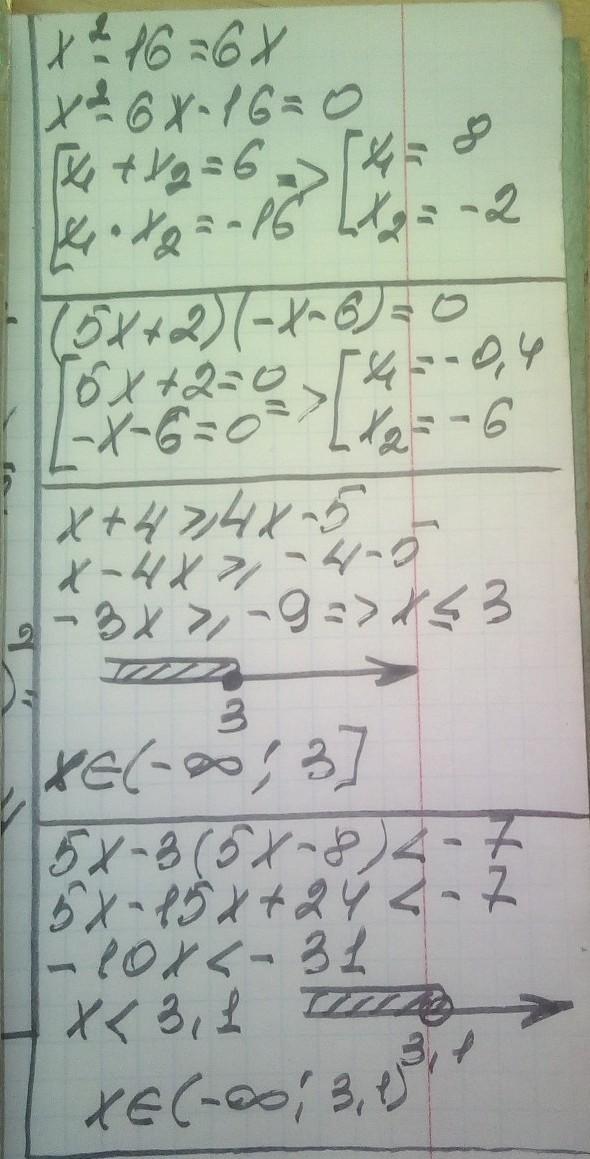 x² - 16 = 6x
x² - 6x - 16 = 0
[x₁ + x₂ = 6 => [x₁ = 8
[x₁ · x₂ = -16 [x₂ = -2
(5x+2)(-x-6) = 0
[5x+2=0 => [x₁ = -0,4
[-x-6=0 [x₂ = -6
x+4 ⩾ 4x-5
x-4x ⩾ -4-5
-3x ⩾ -9 => x ≤ 3
3
x∈(-∞; 3]
5x-3(5x-8) < -7
5x-15x+24 < -7
-10x < -31
x < 3,1
3,1
x∈(-∞; 3,1)